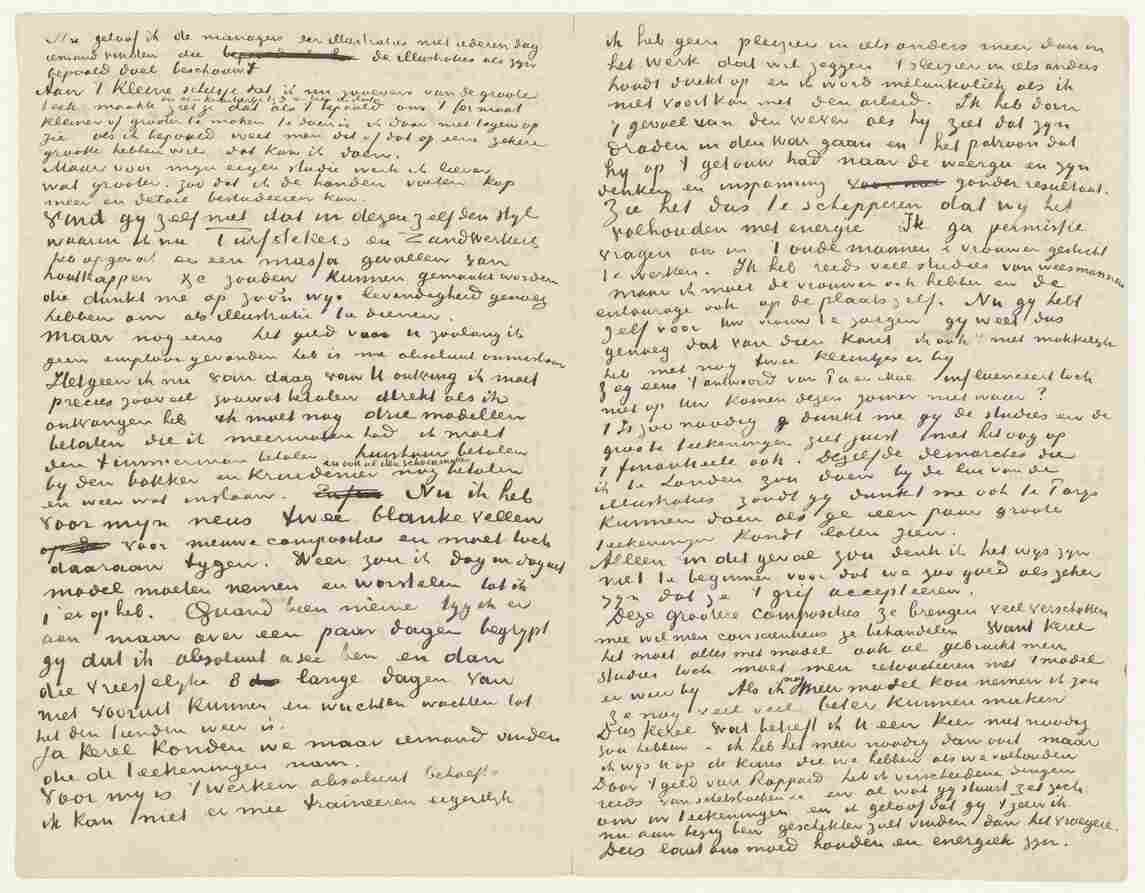 Nu geloof ik de managers der illustraties niet iederen dag
iemand vinden die de illustraties als zyn
bepaald doel beschouwt
Aan 't kleine schetsje dat ik nu zooevens van de groote
teek. maakte zietje dat als 't bepaald om 't formaat
kleiner of grooter te maken te doen is ik daar niet tegen op
zie als ik bepaald weet men dit of dat op een zekere
grootte hebben wil dat kan ik doen.
Maar voor myn eigen studie werk ik liever
wat grooter. zoo dat ik de handen voeten kop
meer en detail bestudeeren kan.
Vind gy zelf niet dat in dezen zelfden styl
waarin ik nu Turfstekers en Zandwerkers
heb opgevat er een massa gevallen van
houthakker &c zouden kunnen gemaakt worden
die dunkt me op zoo'n wys levendigheid genoeg
hebben om als illustratie te dienen.
Maar nog eens het geld van U zoolang ik
geen emplooi gevonden heb is me absoluut onmisbaar
Hetgeen ik nu van daag van U ontving ik moet
precies zooveel betalen direkt als ik
ontvangen heb ik moet nog drie modellen
betalen die ik meermalen had ik moet
den timmerman betalen huishuur betalen
en ook al den schoenmaker
by den bakker en kruidenier nog betalen
en weer wat inslaan. Nu ik heb
voor myn neus twee blanke vellen
voor nieuwe composities en moet toch
daaraan tygen. Weer zou ik dag in dag uit
model moeten nemen en worstelen tot ik
't er op heb. Quand bien même tyg ik er
aan maar over een paar dagen begrypt
gy dat ik absoluut a sec ben en dan
die vreesselyke 8 lange dagen van
niet vooruit kunnen en wachten wachten tot
het den tienden weer is.
Ja kerel konden we maar iemand vinden
die de teekeningen nam.
Voor my is 't werken absoluut behoefte
ik kan niet er mee traineeren eigenlyk
ik heb geen pleizier in iets anders meer dan in
het werk dat wil zeggen 't pleizier in iets anders
houdt direkt op en ik word melankoliek als ik
niet voort kan met den arbeid. Ik heb dan
't gevoel van den wever als hy ziet dat zyn
draden in den war gaan en het patroon dat
hy op 't getouw had naar de weerga en zyn
denken en inspanning zonder resultaat.
Zie het dus te schipperen dat wy het
volhouden met energie Ik ga permissie
vragen om in 't oude mannen & vrouwen gesticht
te werken. Ik heb reeds veel studies van weesmannen
maar ik moet de vrouwen ook hebben en de
entourage ook op de plaats zelf. Nu gy hebt
zelf voor uw vrouw te zorgen gy weet dus
genoeg dat van dien kant ik ook 't niet makkelyk
heb met nog twee kleintjes er by
Zeg eens 't antwoord van Pa en Moe influenceert toch
niet op Uw komen dezen zomer niet waar?
't Is zoo noodig dunkt me gy de studies en de
groote teekeningen ziet juist met het oog op
't financieele ook. Dezelfde demarches die
ik te Londen zou doen by de lui van de
illustraties zoudt gy dunkt me ook te Parys
kunnen doen als ge een paar groote
teekeningen kondt laten zien.
Alleen in dat geval zou denk ik het wys zyn
niet te beginnen voor dat we zoo goed als zeker
zyn dat ze 't grif accepteeren.
Deze grootere composities ze brengen veel verschotten
mee wil men consciencieus ze behandelen Want kerel
het moet alles met model ook al gebruikt men
studies toch moet men retoucheeren met 't model
er weer by Als ik nog meer model kon nemen ik zou
ze nog veel veel beter kunnen maken
Dus kerel wat betreft ik U een keer niet noodig
zou hebben - ik heb het meer noodig dan ooit maar
ik wys U op de kans die we hebben als we volhouden
Door 't geld van Rappard heb ik verscheidene dingen
reeds van schetsboeken &c en al wat gy stuurt zet zich
om in teekeningen en ik geloof dat gy 't geen ik
nu aan bezig ben geschikter zult vinden dan het vroegere.
Dus laat ons moed houden en energiek zyn.